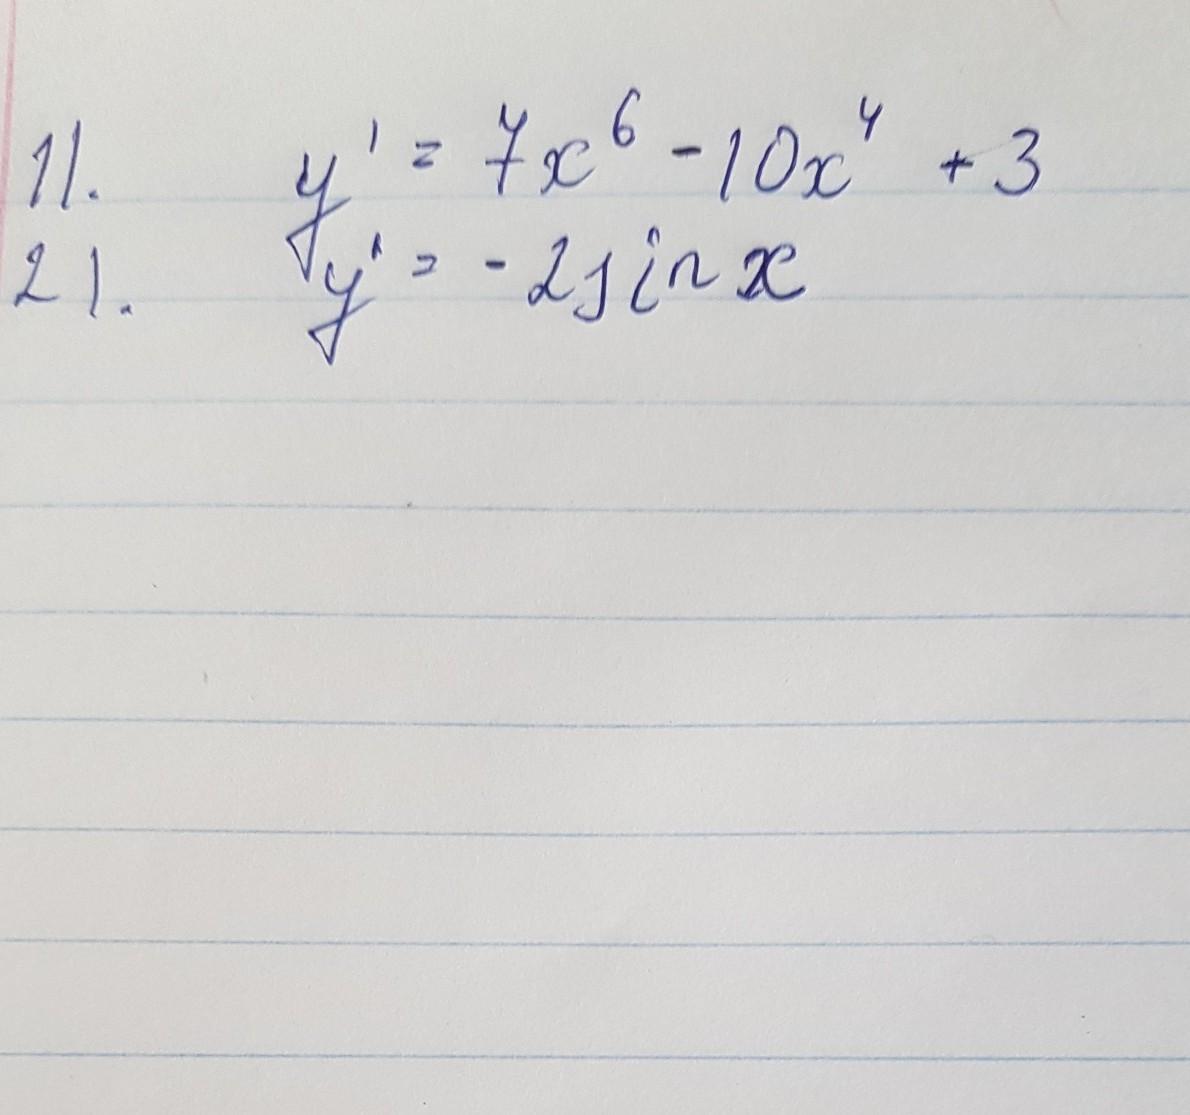 1). y' = 7x⁶ - 10x⁴ + 3
2). y' = -2sin x